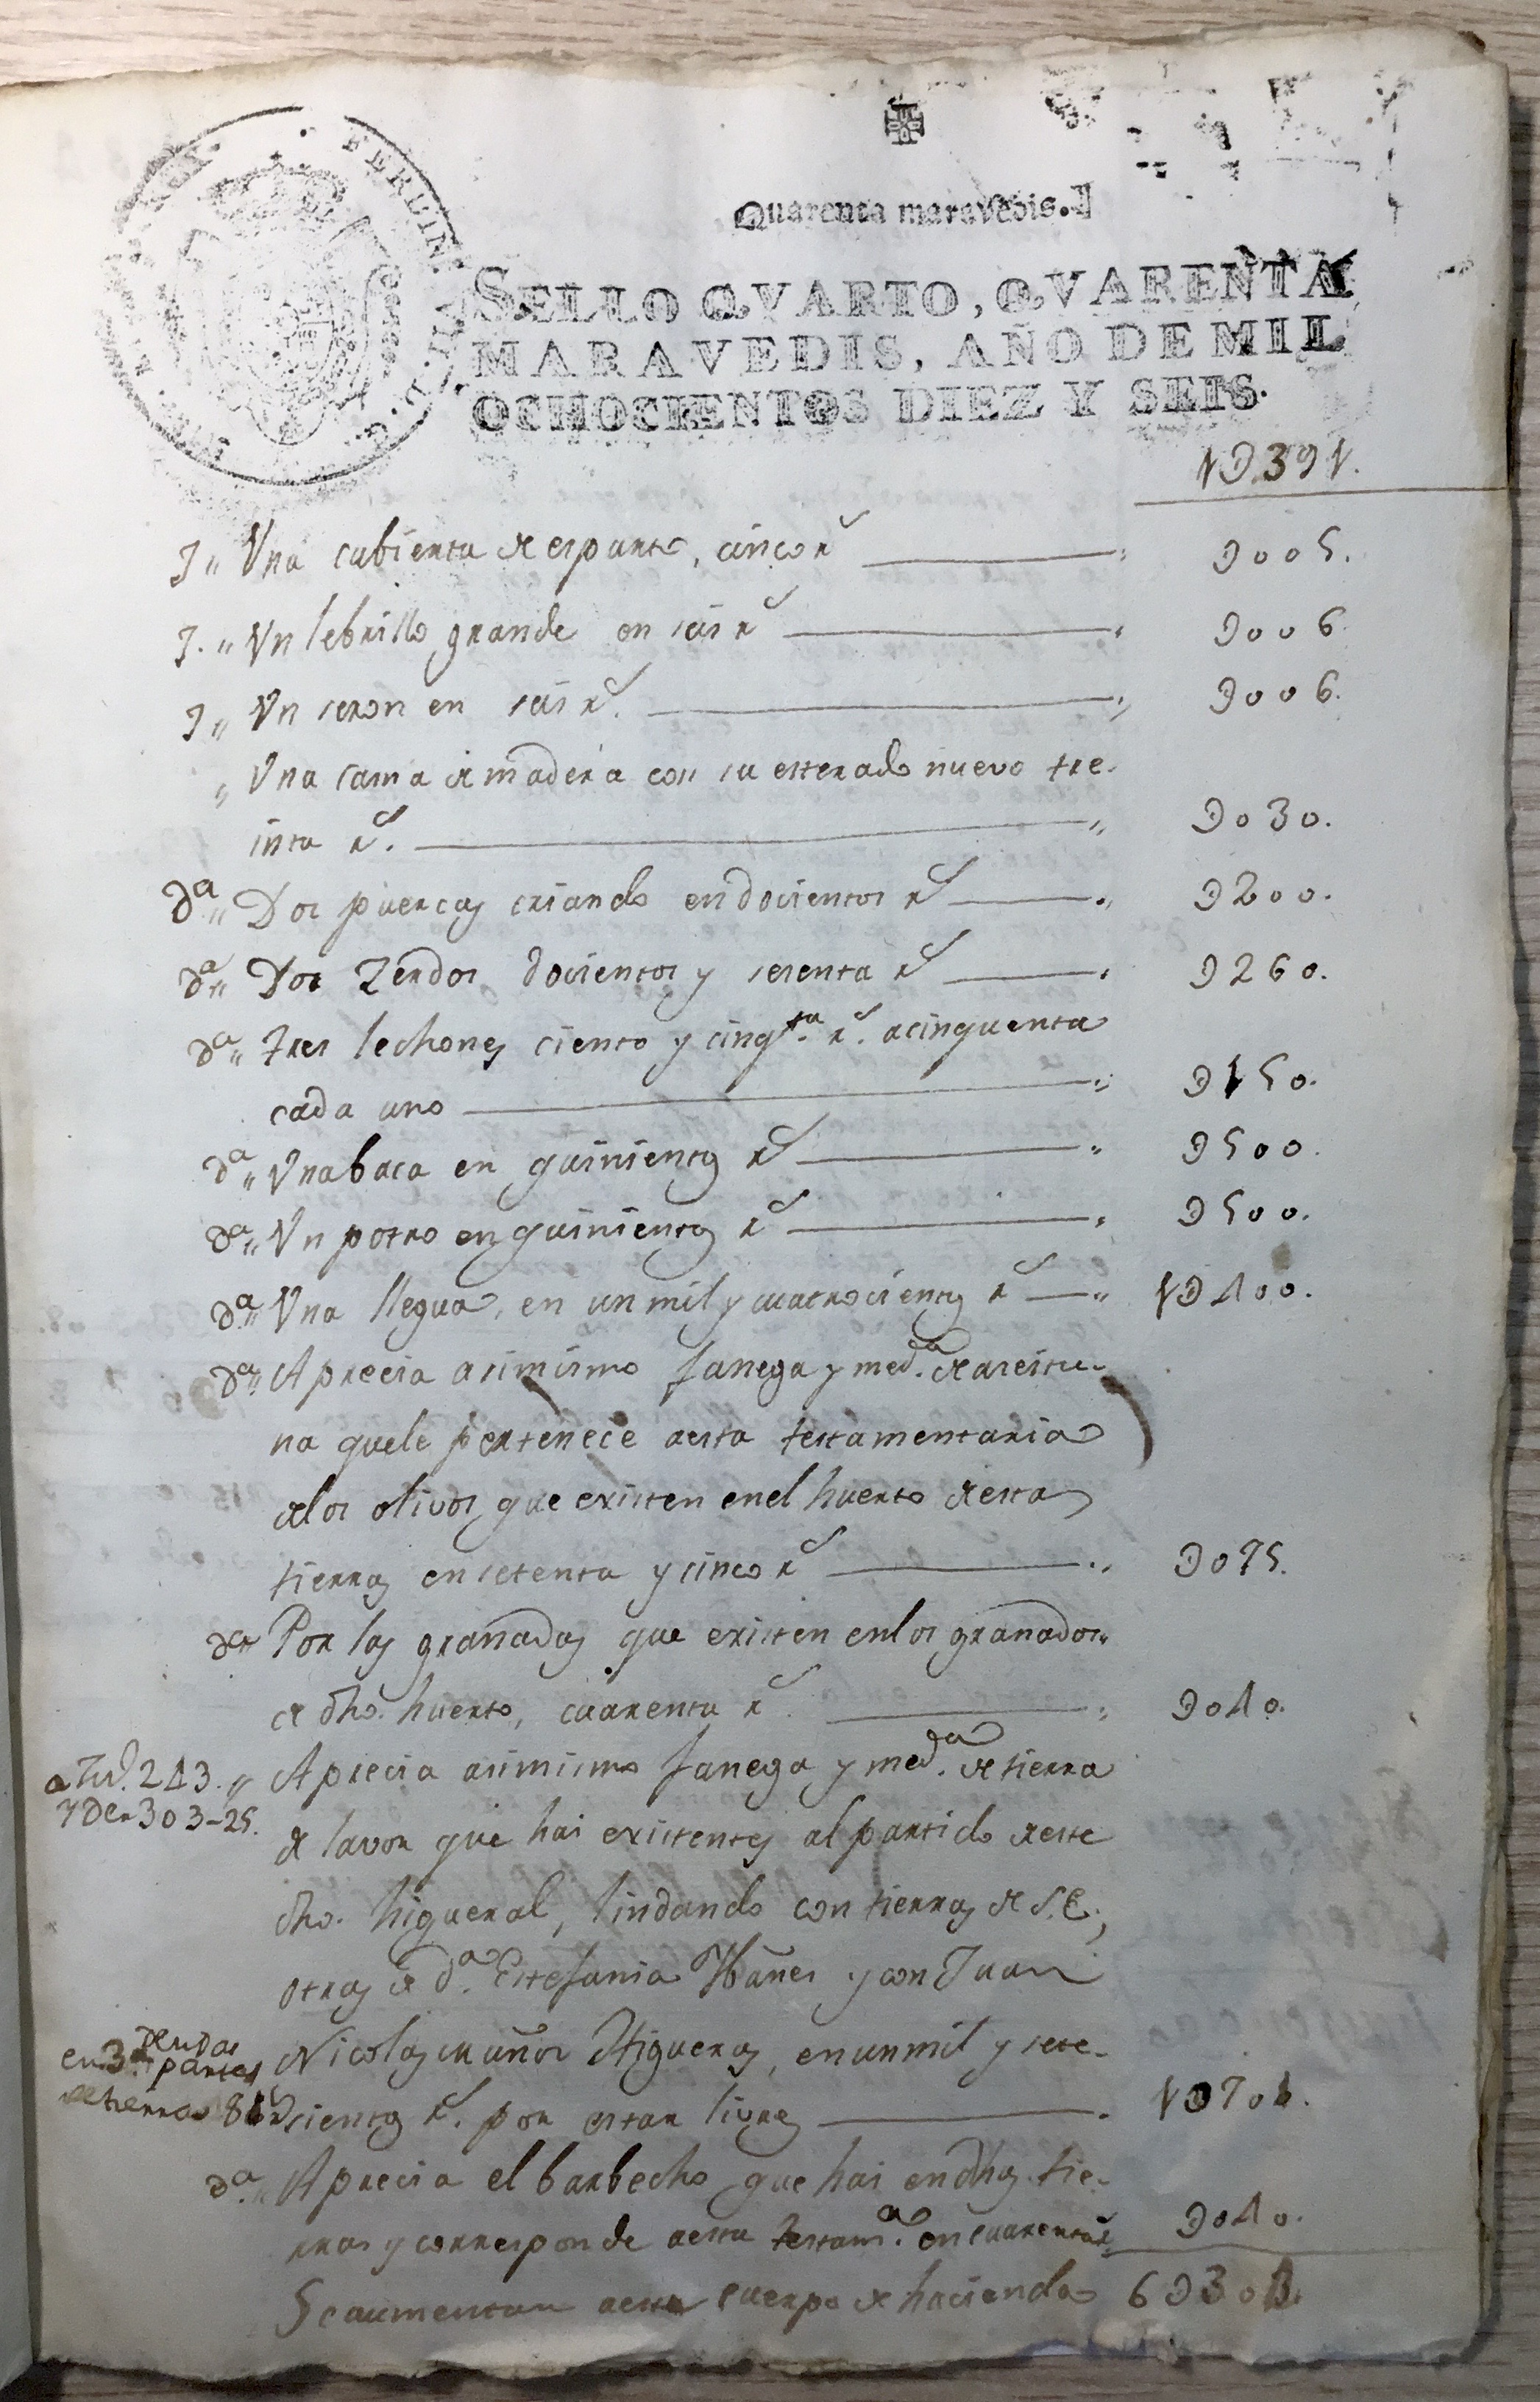 Quarenta maravedis.
SELLO QVARTO, QVARENTA
MARAVEDIS, AÑO DE MIL
OCHOCIENTOS DIEZ Y SEIS.
1D391.
J " Vna cubierta de esparto, cinco rs " D005.
J. " Vn lebrillo grande en seis rs " D006
J " Vn seron en seis rs. " D006.
" Vna cama de madera con su esterado nuevo tre-
inta rs. " D030.
da " Dos puercas criando en docientos rs " D200.
da " Dos Zerdos docientos y sesenta rs " D260.
da " tres lechones ciento y cinqta. rs. a cinquenta
cada uno " D150.
da " Vna baca en quinientos rs " D500.
da " Vn potro en quinientos rs " D500.
da " Vna llegua, en un mil y cuatrocientos rs " 1D400.
da " Aprecia asimismo fanega y meda. de aseitu-
na que le pertenece a esta testamentaria
de los olivos que existen en el huerto de esta
tierras en setenta y cinco rs " D075.
da Por las granadas que existen en los granados "
de dho. huerto, cuarenta rs " D040.
243. " Aprecia asimismo fanega y meda. de tierra
303-25.
de lavor que hai existentes al partido de este
dho. higueral, lindando con tierras de S.E.,
otras de da. Estefania Ybañes y con Juan
Deudas
Nicolas Muños Higueras, en un mil y sete-
partes
cientos rs. por estar livres 1D701.
da. " Aprecia el barbecho que hai en dhas. tie-
rras y corresponde a esta testama. en cuarenta rs D040.
Se aumentan a este cuerpo de hacienda 6D30